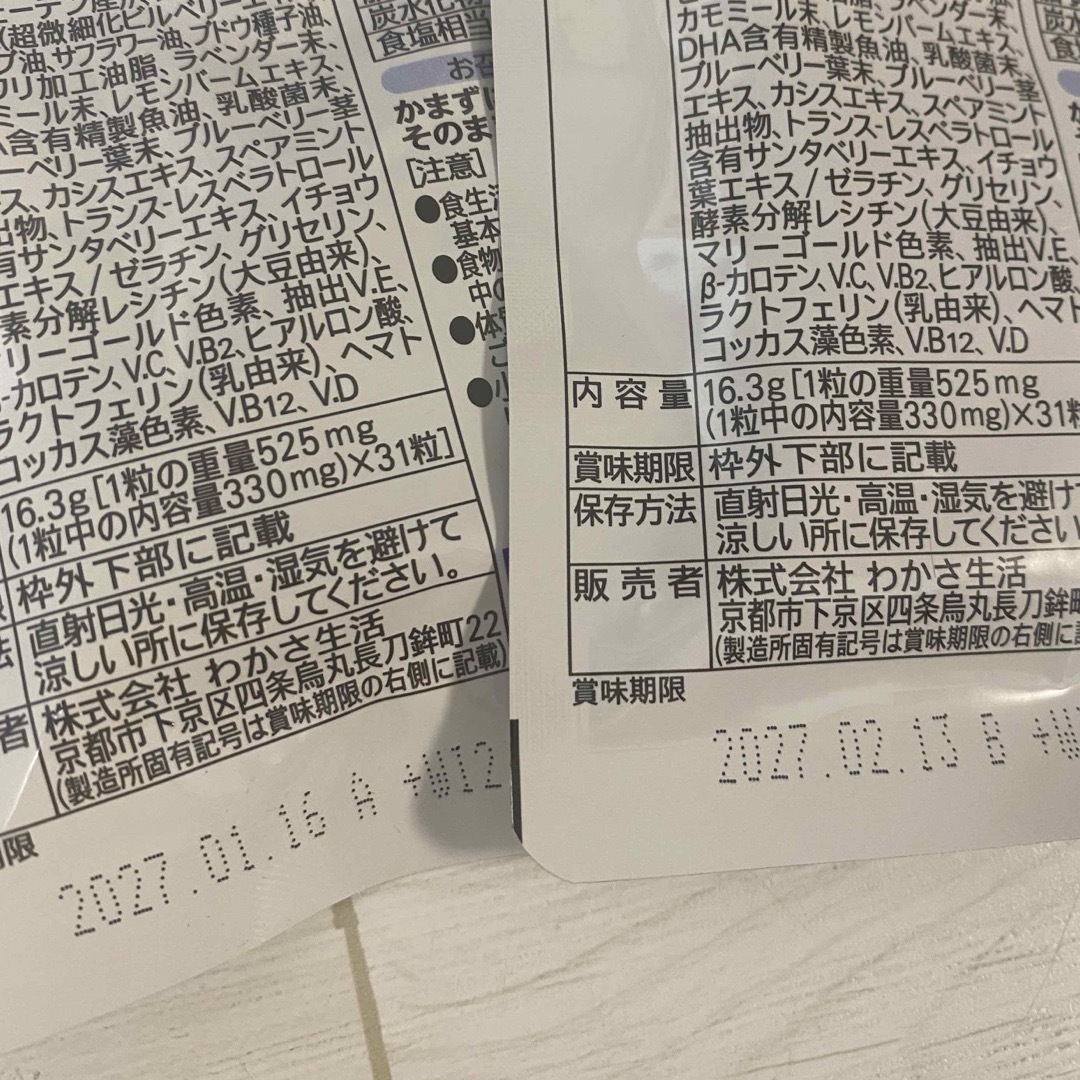 (超微細化ビルベリーエ
プ油、サフラワー油、ブドウ種子油、
フリ加工油脂、ラベンダー末、
ミール末、レモンバームエキス、
含有精製魚油、乳酸菌末、
ーベリー葉末、ブルーベリー茎
ス、カシスエキス、スペアミント
出物、トランス-レスベラトロール
有サンタベリーエキス、イチョウ
エキス/ゼラチン、グリセリン、
素分解レシチン(大豆由来)、
リーゴールド色素、抽出V.E、
-カロテン、V.C、V.B2、ヒアルロン酸、
ラクトフェリン(乳由来)、ヘマト
コッカス藻色素、V.B12、V.D
16.3g[1粒の重量525mg
(1粒中の内容量330mg)×31粒]
枠外下部に記載
直射日光・高温・湿気を避けて
涼しい所に保存してください。
者
株式会社 わかさ生活
京都市下京区四条烏丸長刀鉾町22
(製造所固有記号は賞味期限の右側に記載)
限
2027.01.16 A +W12
炭水化物
食塩相当
お召
かまず
そのま
[注意]
●食生活
基本
●食物
中の
●体質
ご
●小
カモミール末、レモンバームエキス、
DHA含有精製魚油、乳酸菌末、
ブルーベリー葉末、ブルーベリー茎
エキス、カシスエキス、スペアミント
抽出物、トランス-レスベラトロール
含有サンタベリーエキス、イチョウ
葉エキス/ゼラチン、グリセリン、
酵素分解レシチン(大豆由来)、
マリーゴールド色素、抽出V.E、
β-カロテン、V.C、V.B2、ヒアルロン酸、
ラクトフェリン(乳由来)、ヘマト
コッカス藻色素、V.B12、V.D
内容量 16.3g[1粒の重量525mg
(1粒中の内容量330mg)×31粒
賞味期限 枠外下部に記載
保存方法 直射日光・高温・湿気を避けて
涼しい所に保存してください
販売者 株式会社 わかさ生活
京都市下京区四条烏丸長刀鉾町
(製造所固有記号は賞味期限の右側に記
賞味期限
2027.02.13 B +W